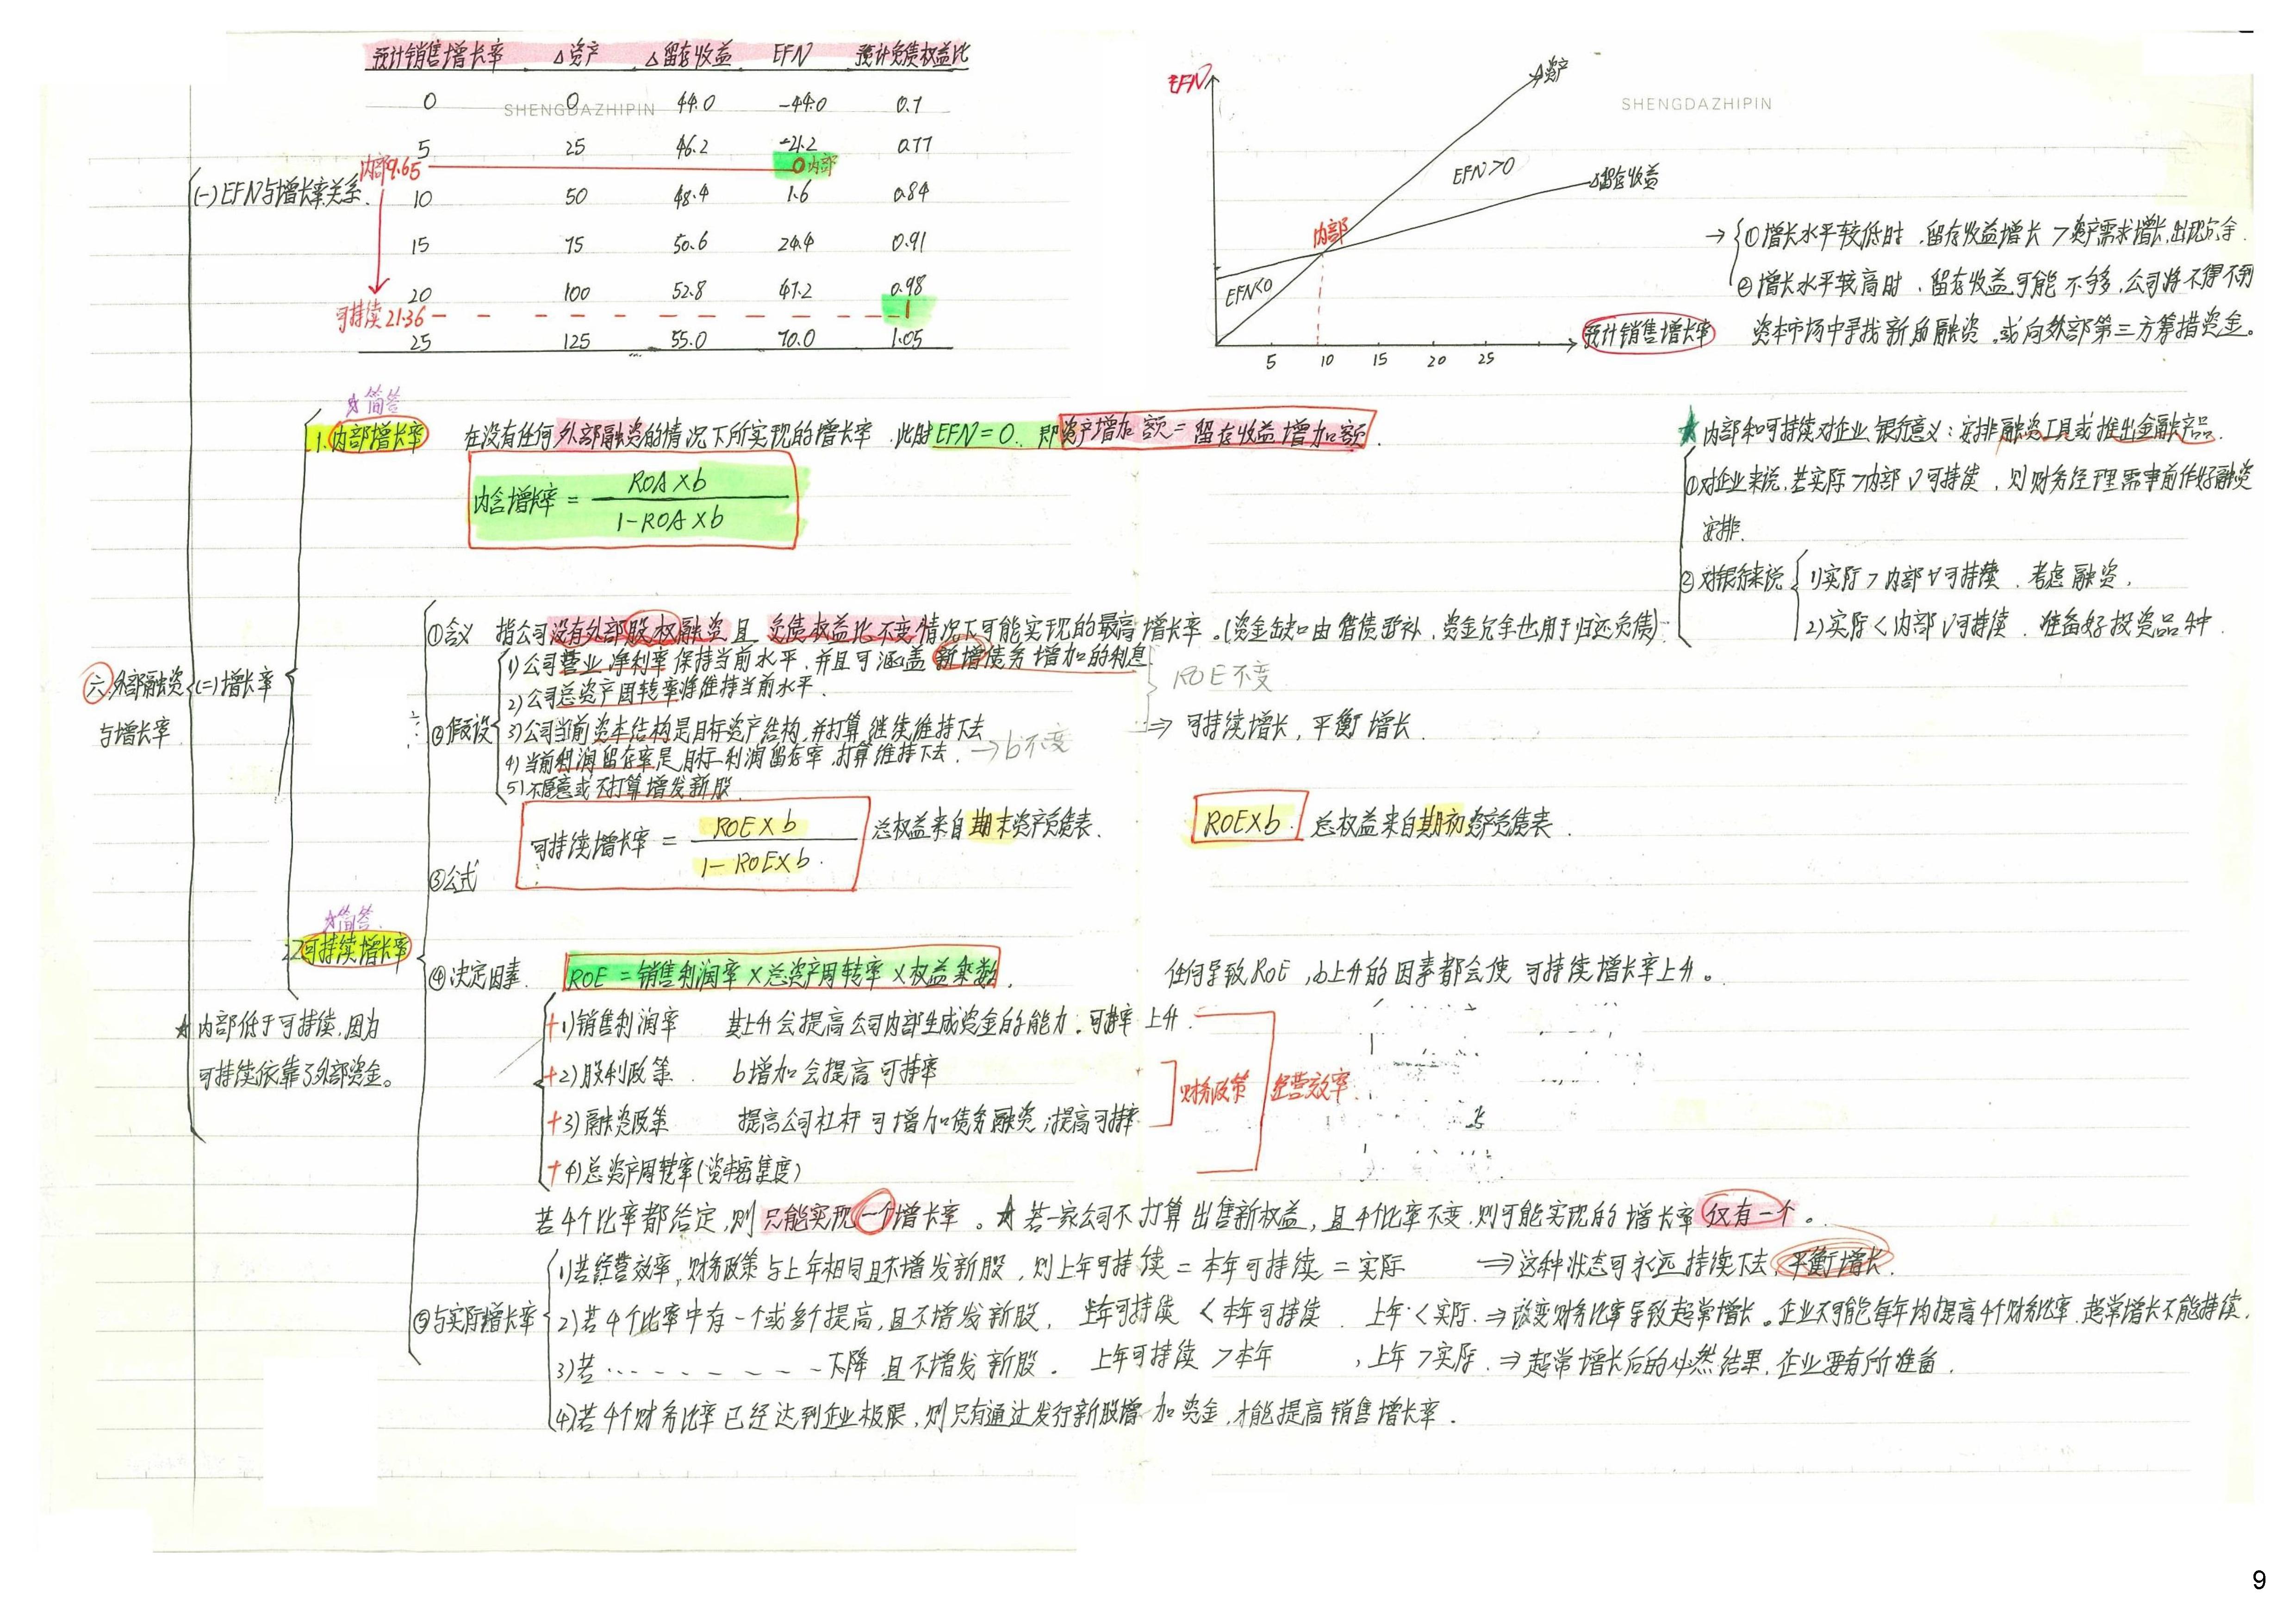 预计销售增长率 △资产 △留存收益 EFN 预计负债权益比
0 0 44.0 -44.0 0.7
SHENGDAZHIPIN
5 25 46.2 -21.2 0.77
内部9.65 0内部
10 50 48.4 1.6 0.84
15 75 50.6 24.4 0.91
20 100 52.8 47.2 0.98
可持续21.36 1
25 125 55.0 70.0 1.05
(一)EFN与增长率关系
EFN
△资产
SHENGDAZHIPIN
EFN>0
△留存收益
内部
EFN<0
5 10 15 20 25
预计销售增长率
→ ①增长水平较低时,留存收益增长>资产需求增长,出现冗余.
②增长水平较高时,留存收益可能不够,公司将不得不到
资本市场中寻找新的融资,或向外部第三方筹措资金。
六.外部融资
与增长率
(二)增长率
☆简答
1.内部增长率 在没有任何外部融资的情况下所实现的增长率.此时EFN=0.即资产增加额=留存收益增加额.
内含增长率 = ROA×b / 1-ROA×b
★内部和可持续对企业、银行意义:安排融资工具或推出金融产品.
①对企业来说,若实际>内部∨可持续,则财务经理需事前作好融资
安排.
②对银行来说 1)实际>内部∨可持续.考虑融资.
2)实际<内部∨可持续.准备好投资品种.
☆简答.
2.可持续增长率
①含义 指公司没有外部股权融资且负债权益比不变情况下可能实现的最高增长率.(资金缺口由借债弥补,资金冗余也用于归还负债)
②假设 1)公司营业净利率保持当前水平,并且可涵盖新增债务增加的利息
2)公司总资产周转率将维持当前水平.
ROE不变
3)公司当前资本结构是目标资产结构,并打算继续维持下去
⇒ 可持续增长,平衡增长.
4)当前利润留存率是目标利润留存率,打算维持下去. →b不变
5)不愿意或不打算增发新股.
③公式
可持续增长率 = ROE×b / 1-ROE×b. 总权益来自期末资产负债表.
ROE×b. 总权益来自期初资产负债表.
④决定因素. ROE=销售利润率×总资产周转率×权益乘数. 任何导致ROE,b上升的因素都会使可持续增长率上升。
+1)销售利润率 其上升会提高公司内部生成资金的能力.可持率上升.
+2)股利政策. b增加会提高可持率
+3)融资政策 提高公司杠杆可增加债务融资,提高可持率
+4)总资产周转率(资本密集度)
财务政策
经营效率
☆内部低于可持续,因为
可持续依靠了外部资金。
若4个比率都给定,则只能实现一个增长率。☆若一家公司不打算出售新权益,且4个比率不变.则可能实现的增长率仅有一个。
⑤与实际增长率
1)若经营效率,财务政策与上年相同且不增发新股,则上年可持续=本年可持续=实际 ⇒这种状态可永远持续下去,平衡增长.
2)若4个比率中有一个或多个提高,且不增发新股, 上年可持续<本年可持续. 上年<实际.⇒改变财务比率导致超常增长。企业不可能每年均提高4个财务比率.超常增长不能持续.
3)若…------下降且不增发新股. 上年可持续>本年 ,上年>实际.⇒超常增长后的必然结果,企业要有所准备.
(4)若4个财务比率已经达到企业极限,则只有通过发行新股增加资金,才能提高销售增长率.
9